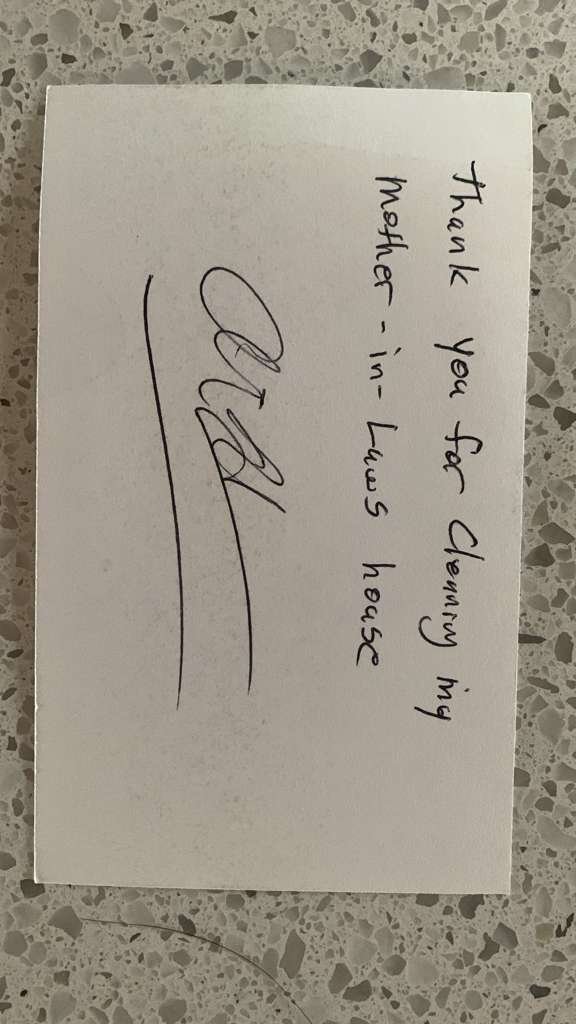 Thank you for Cleaning my
mother-in-Laws house